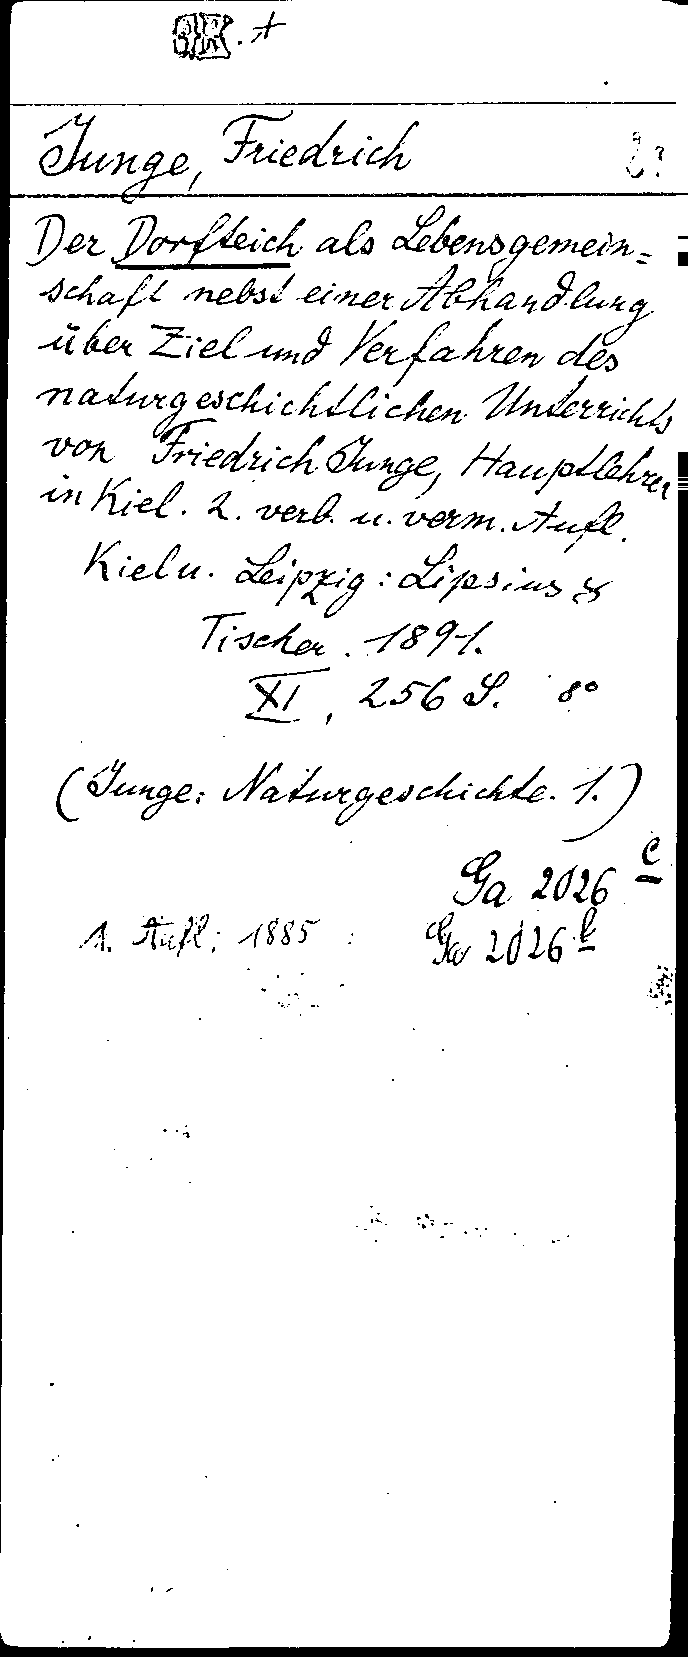 Junge, Friedrich
Der Dorfteich als Lebensgemein=
schaft nebst einer Abhandlung
über Ziel und Verfahren des
naturgeschichtlichen Unterrichts
von Friedrich Junge, Hauptlehrer
in Kiel. 2. verb. u. verm. Aufl.
Kiel u. Leipzig: Lipsius &
Tischer. 1891.
XI, 256 S. 8°
(Junge: Naturgeschichte. 1.)
Ga 2026 c
1. Aufl.: 1885 : Ga 2026 b